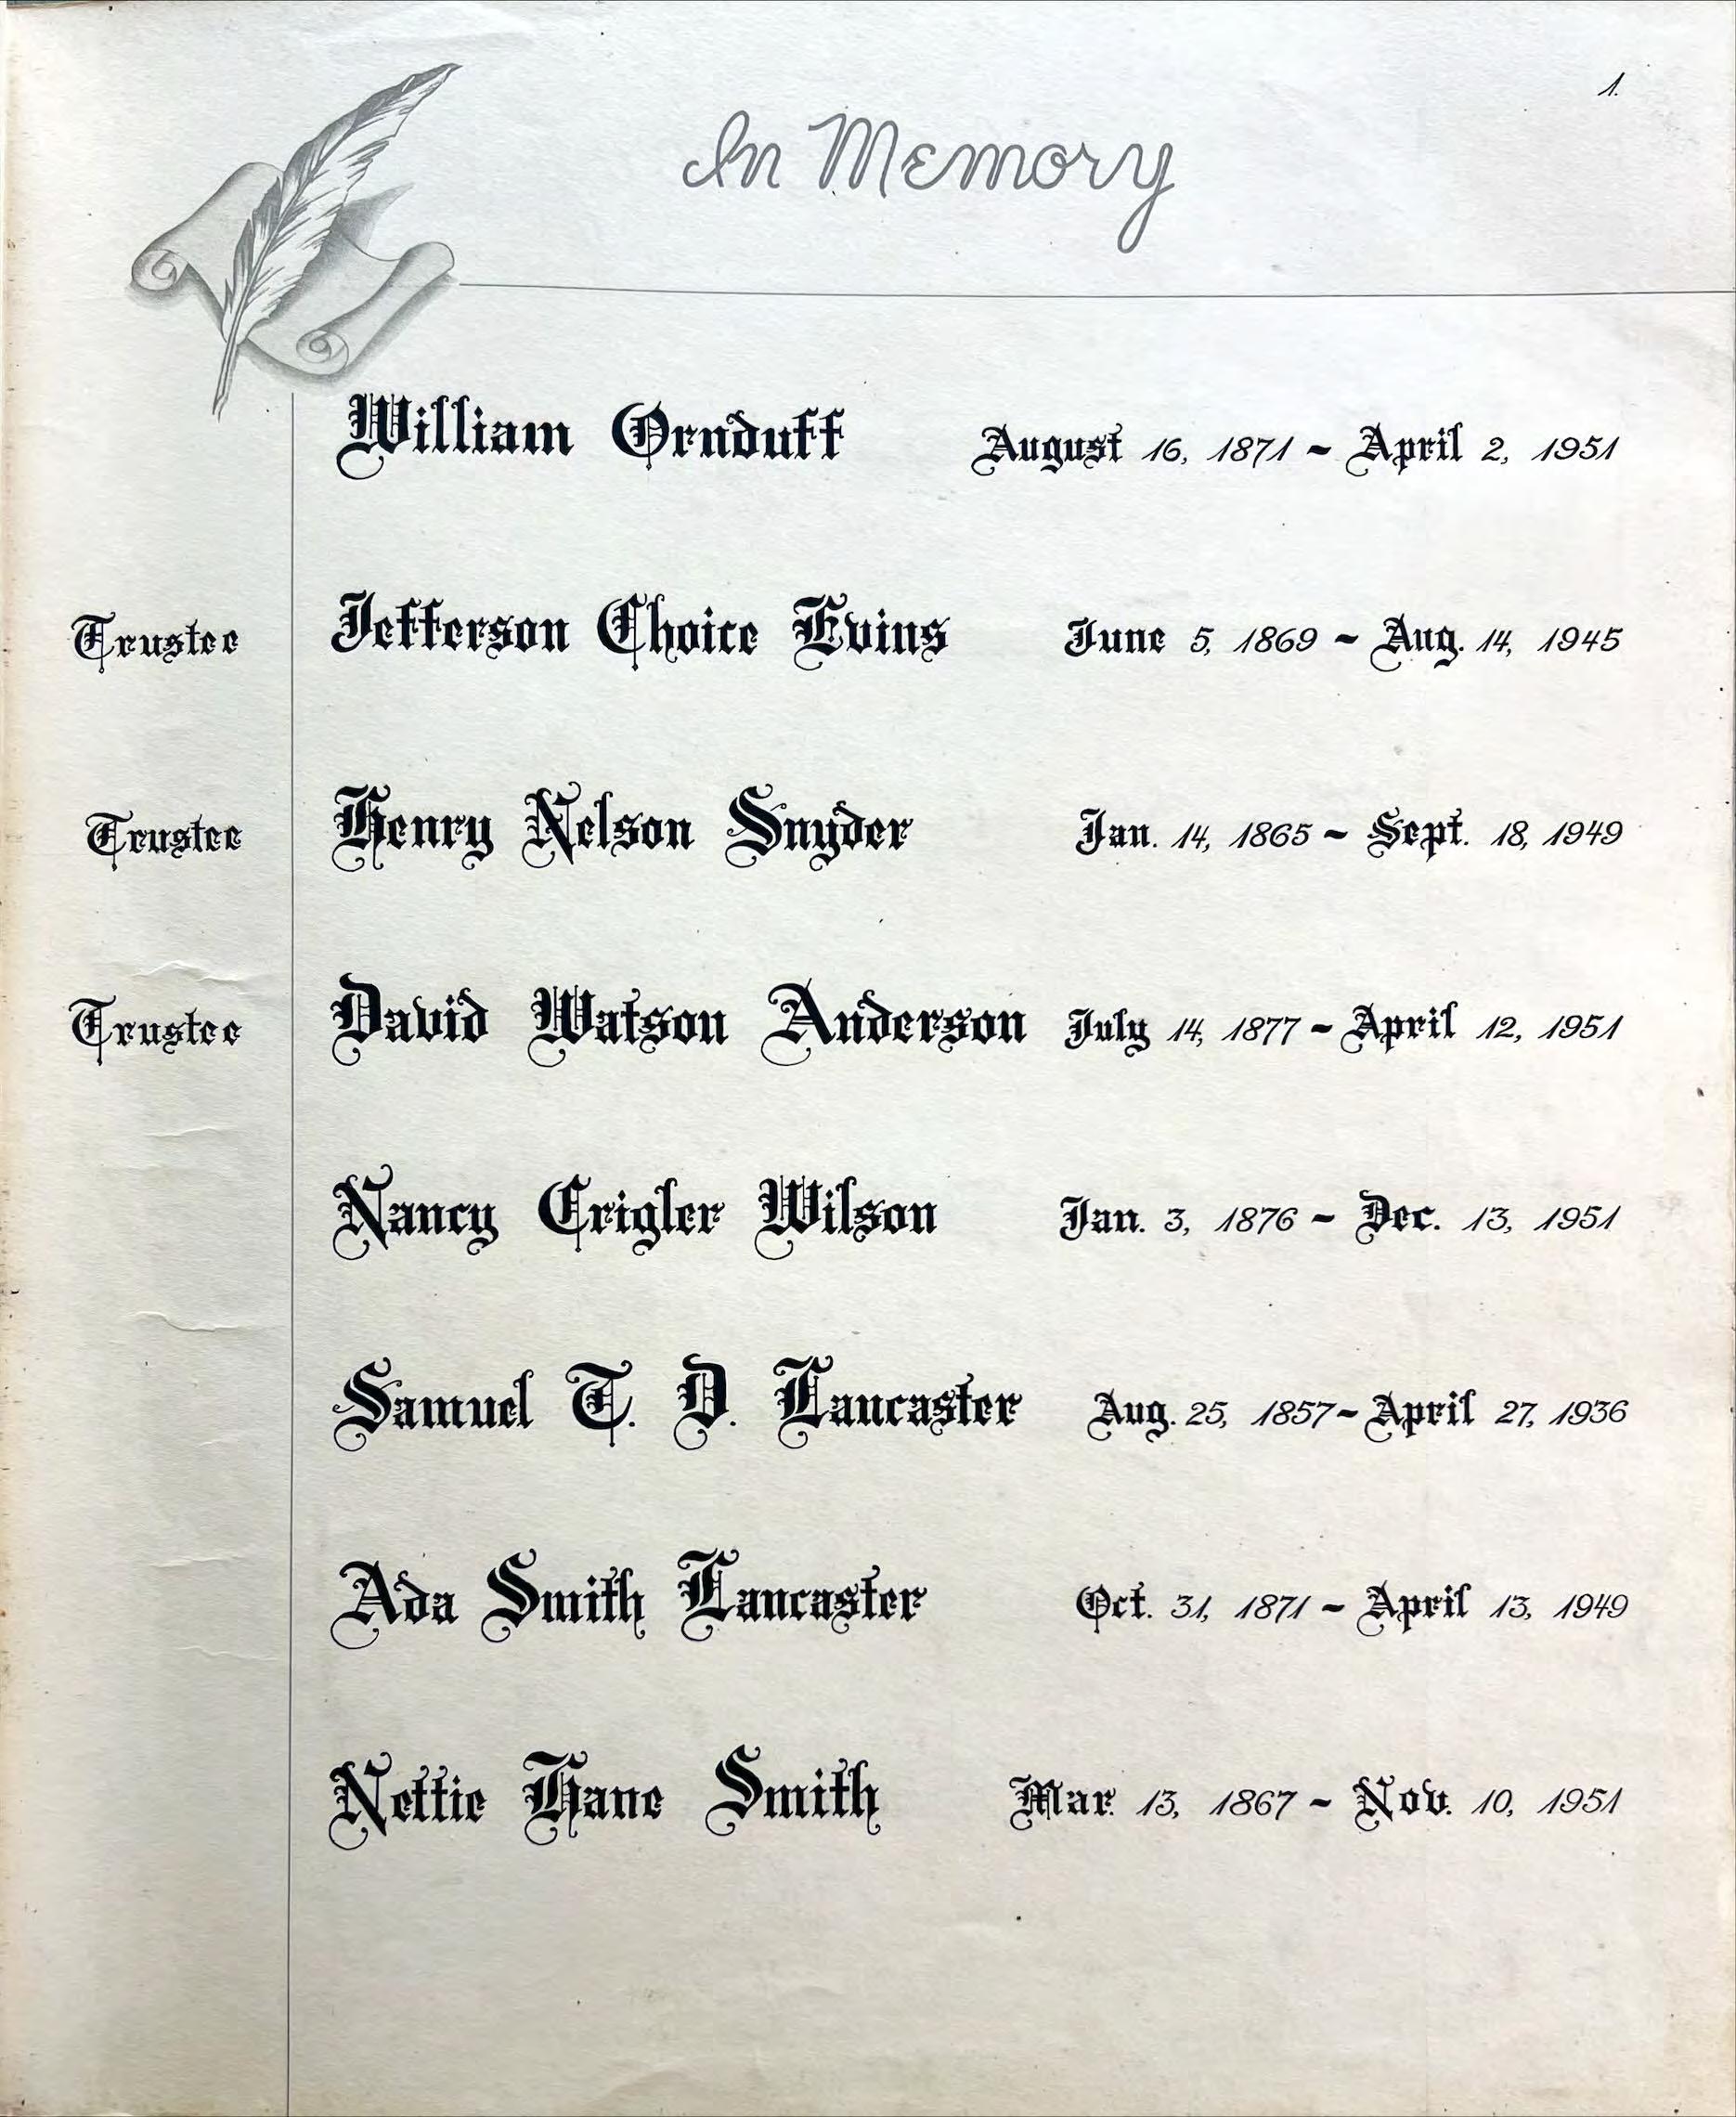 1.
In Memory
William Ornduff August 16, 1871 ~ April 2, 1951
Trustee Jefferson Choice Evins June 5, 1869 ~ Aug. 14, 1945
Trustee Henry Nelson Snyder Jan. 14, 1865 ~ Sept. 18, 1949
Trustee David Watson Anderson July 14, 1877 ~ April 12, 1951
Nancy Crigler Wilson Jan. 3, 1876 ~ Dec. 13, 1951
Samuel T. D. Lancaster Aug. 25, 1857 ~ April 27, 1936
Ada Smith Lancaster Oct. 31, 1871 ~ April 13, 1949
Nettie Hane Smith Mar. 13, 1867 ~ Nov. 10, 1951